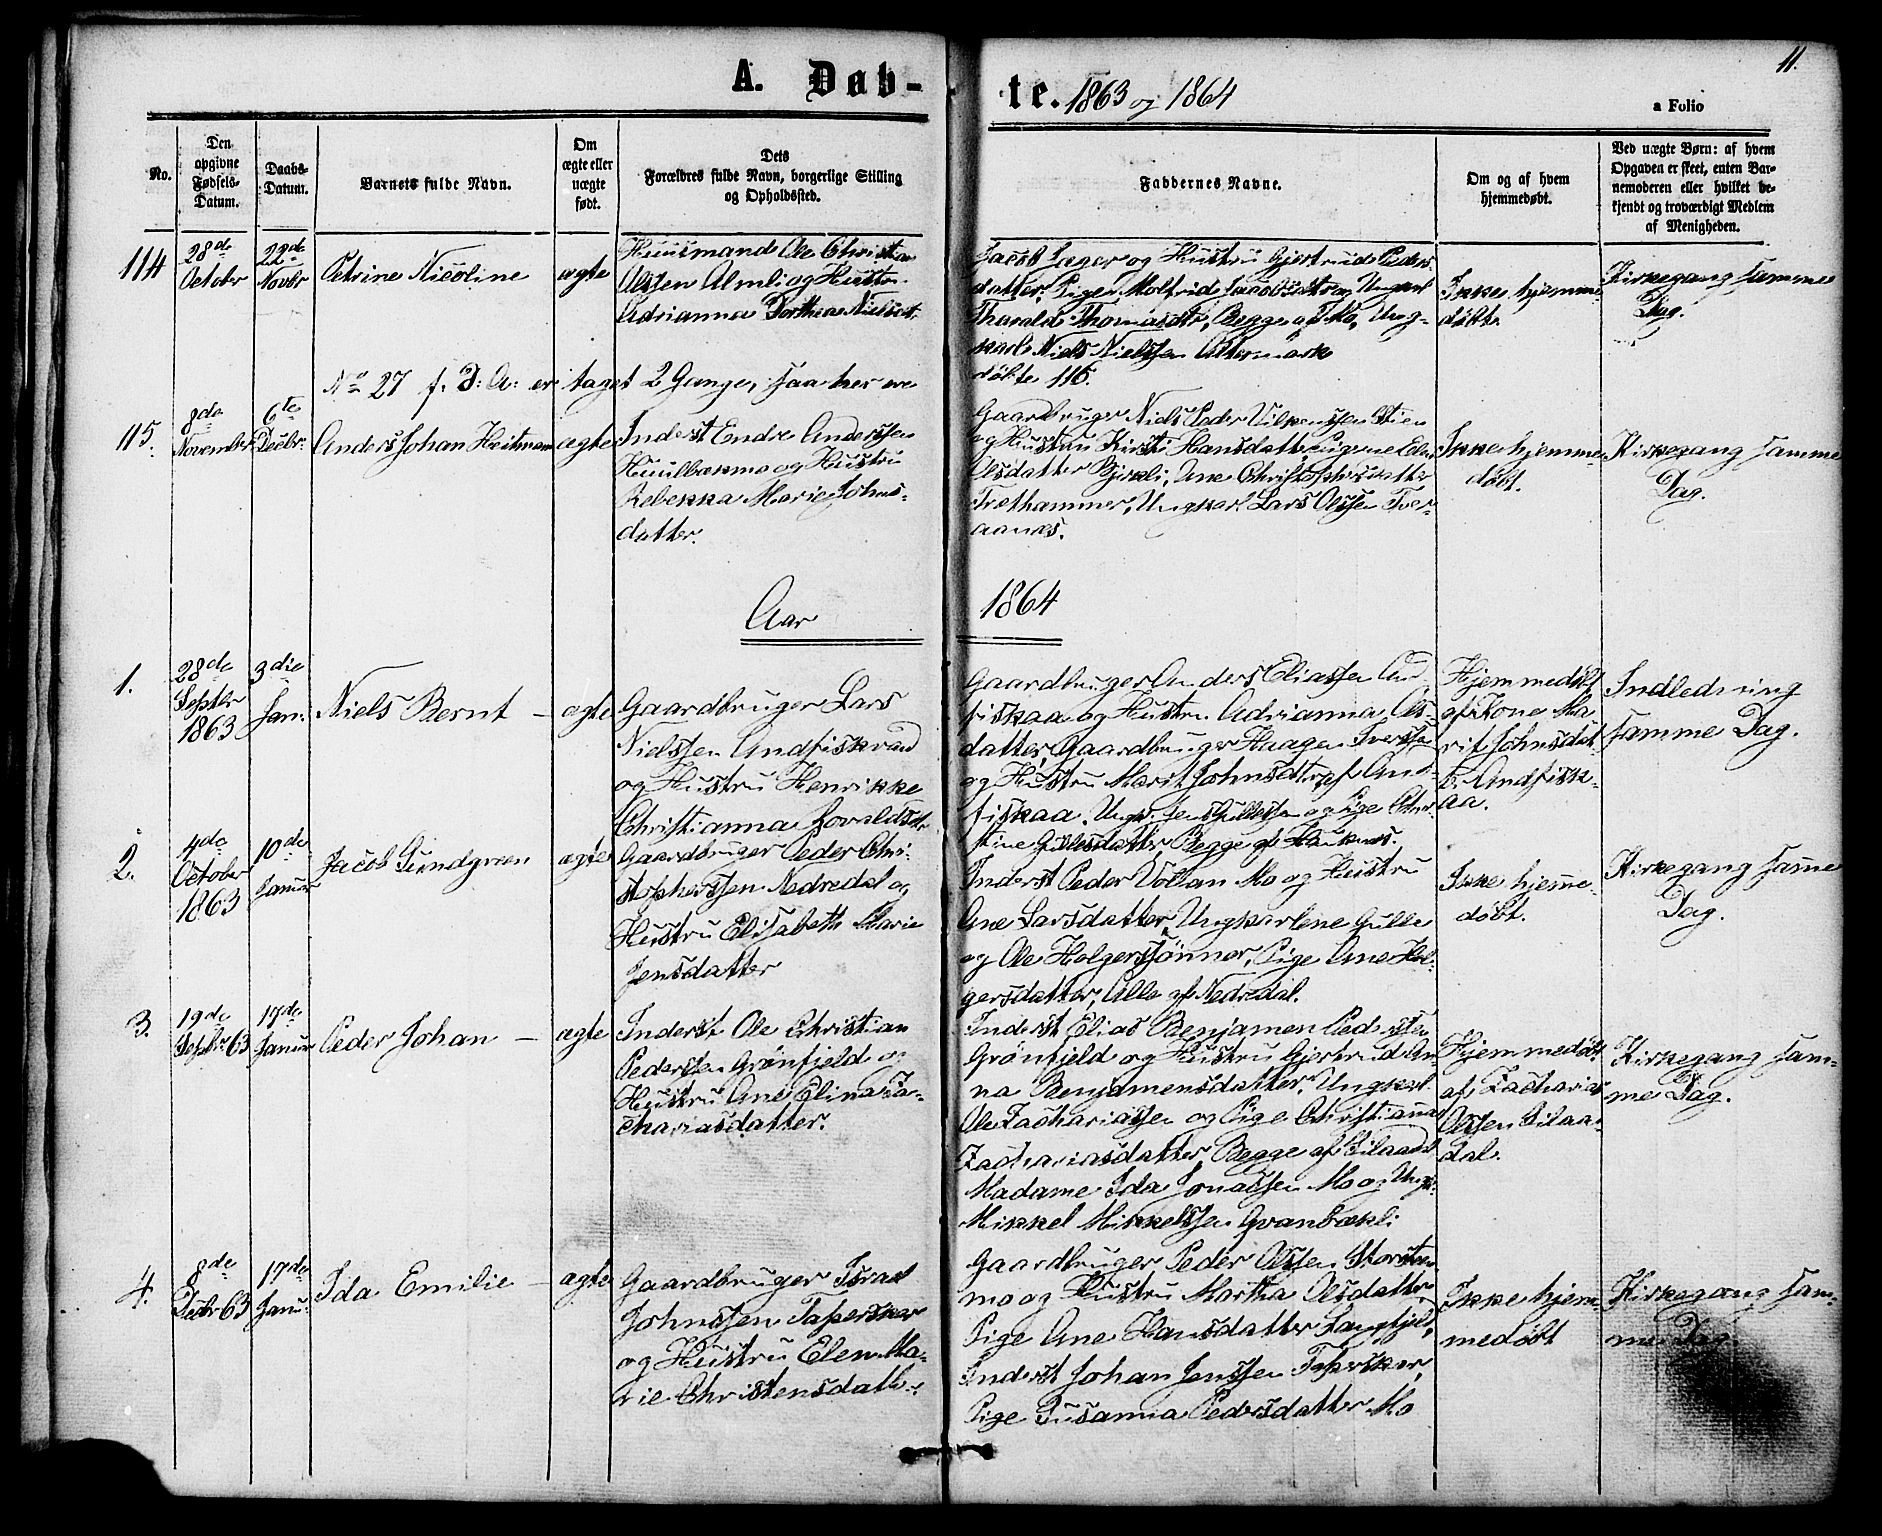 11.
A. Døb-
te. 1863 og 1864
a Folio
No.
Den
opgivne
Fødsels-
Datum.
Daabs-
Datum.
Barnets fulde Navn.
Om
ægte eller
uægte
født.
Dets
Forældres fulde Navn, borgerlige Stilling
og Opholdssted.
Faddernes Navne.
Om og af hvem
hjemmedøbt.
Ved uægte Børn: af hvem
Opgaven er skeet, enten Bar-
nemoderen eller hvilket be-
kjendt og troværdigt Medlem
af Menigheden.
114
28de
October
22de
Novbr
Petrine Nicoline
ægte
Huusmand Ole Christian
Olssen Almli og Hustru
Adrianna Dorthea Nielsdt.
Jacob Jæger og Hustru Gjertrud Peders-
datter, Pigen Molfrid Jacobsdtr og Ungkarl
Tharald Thomasdtr, Begge af Mo, Ung-
karl Niels Nielssen Altermark
døbte 115.
Ikke hjemme-
døbt.
Kirkegang samme
Dag.
No 27 f. D: A: er taget 2 Gange, saa her ere
115.
8de
November
6te
Decbr.
Anders Johan Heitmann
ægte
Inderst Endre Anderssen
Huulbækmo og Hustru
Rebekka Marie Johns-
datter.
Gaardbruger Niels Peder Vilkenssen Stien
og Hustru Kirsti Hansdatter, Pigerne Elen
Olsdatter Bjerkli, Ane Christophersdatter
Træthammer, Ungkarl Lars Olssen Tver-
aanes.
Ikke hjemme-
døbt.
Kirkegang samme
Dag.
Aar 1864
1.
28de
Septbr
1863
3die
Jan:
Niels Bernt —
ægte
Gaardbruger Lars
Nielssen Andfiskvand
og Hustru Henrikke
Christianna Rovaldsdtr
Gaardbruger Anders Eliassen And-
fiskaa og Hustru Adrianna Ols-
datter, Gaardbruger Haagen Iverssen
og Hustru Marit Johnsdtr af And-
fiskaa, Ungk. Jens Gullessen og Pige Chri-
stine Gullesdatter, Begge af Hauknes.
Hjemmedøbt
af Kone Ma-
rit Johnsdat-
ter Andfisk-
aa.
Indledning
samme Dag.
2.
4de
October
1863
10de
Januar
Jacob Lundgreen
ægte
Gaardbruger Peder Chri-
stopherssen Nedredal og
Hustru Elisabeth Marie
Jensdatter
Inderst Peder Vollan Mo og Hustru
Ane Larsdatter, Ungkarlene Gulle
og Ole Holgerssønner, Pige Ane Hol-
gersdatter, Alle af Nedredal.
Ikke hjemme-
døbt.
Kirkegang samme
Dag.
3.
19de
Septbr 63
17de
Januar
Peder Johan —
ægte
Inderst Ole Christian
Pederssen Grønfjeld og
Hustru Ane Elina Za-
chariasdatter.
Inderst Elias Benjamen Pederssen
Grønfjeld og Hustru Gjertrud An-
na Benjamensdatter, Ungkarl
Ole Zachariassen og Pige Christianna
Zachariasdatter, Begge af Bilaadal
Madame Ida Jonassen Mo og Ungk.
Mikkel Mikkelssen Granbækli
Hjemmedøbt
af Zacharias
Olssen Bilaa-
dal.
Kirkegang sam-
me Dag.
4.
8de
Decbr 63
17de
Janu:
Ida Emilie —
ægte
Gaardbruger Israel
Johnssen Tapeskar
og Hustru Elen Ma-
rie Christensdatter
Gaardbruger Peder Olssen Storsten-
mo og Hustru Martha Olsdatter,
Pige Ane Hansdatter Langfjeld,
Inderst Johan Jenssen Tapeskar,
Pige Susanna Pedersdatter Mo
Ikke hjem-
medøbt
Kirkegang sam-
me Dag.